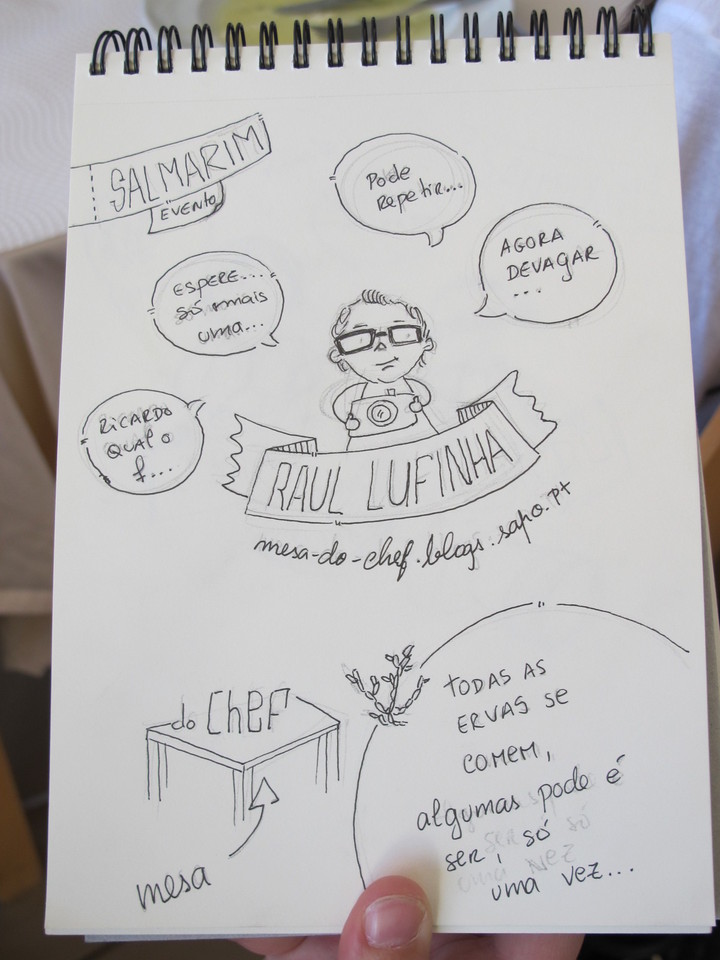 SALMARIM
EVENTO
Pode
Repetir...
AGORA
DEVAGAR
...
ESPERE....
só mais
uma...
RiCARDO
QUAl o
f...
RAUL LUFINHA
mesa-do-chef.blogs.sapo.pt
do Chef
mesa
TODAS AS
ERVAS SE
COMEM,
algumas pode é
SER, só
uma vez...